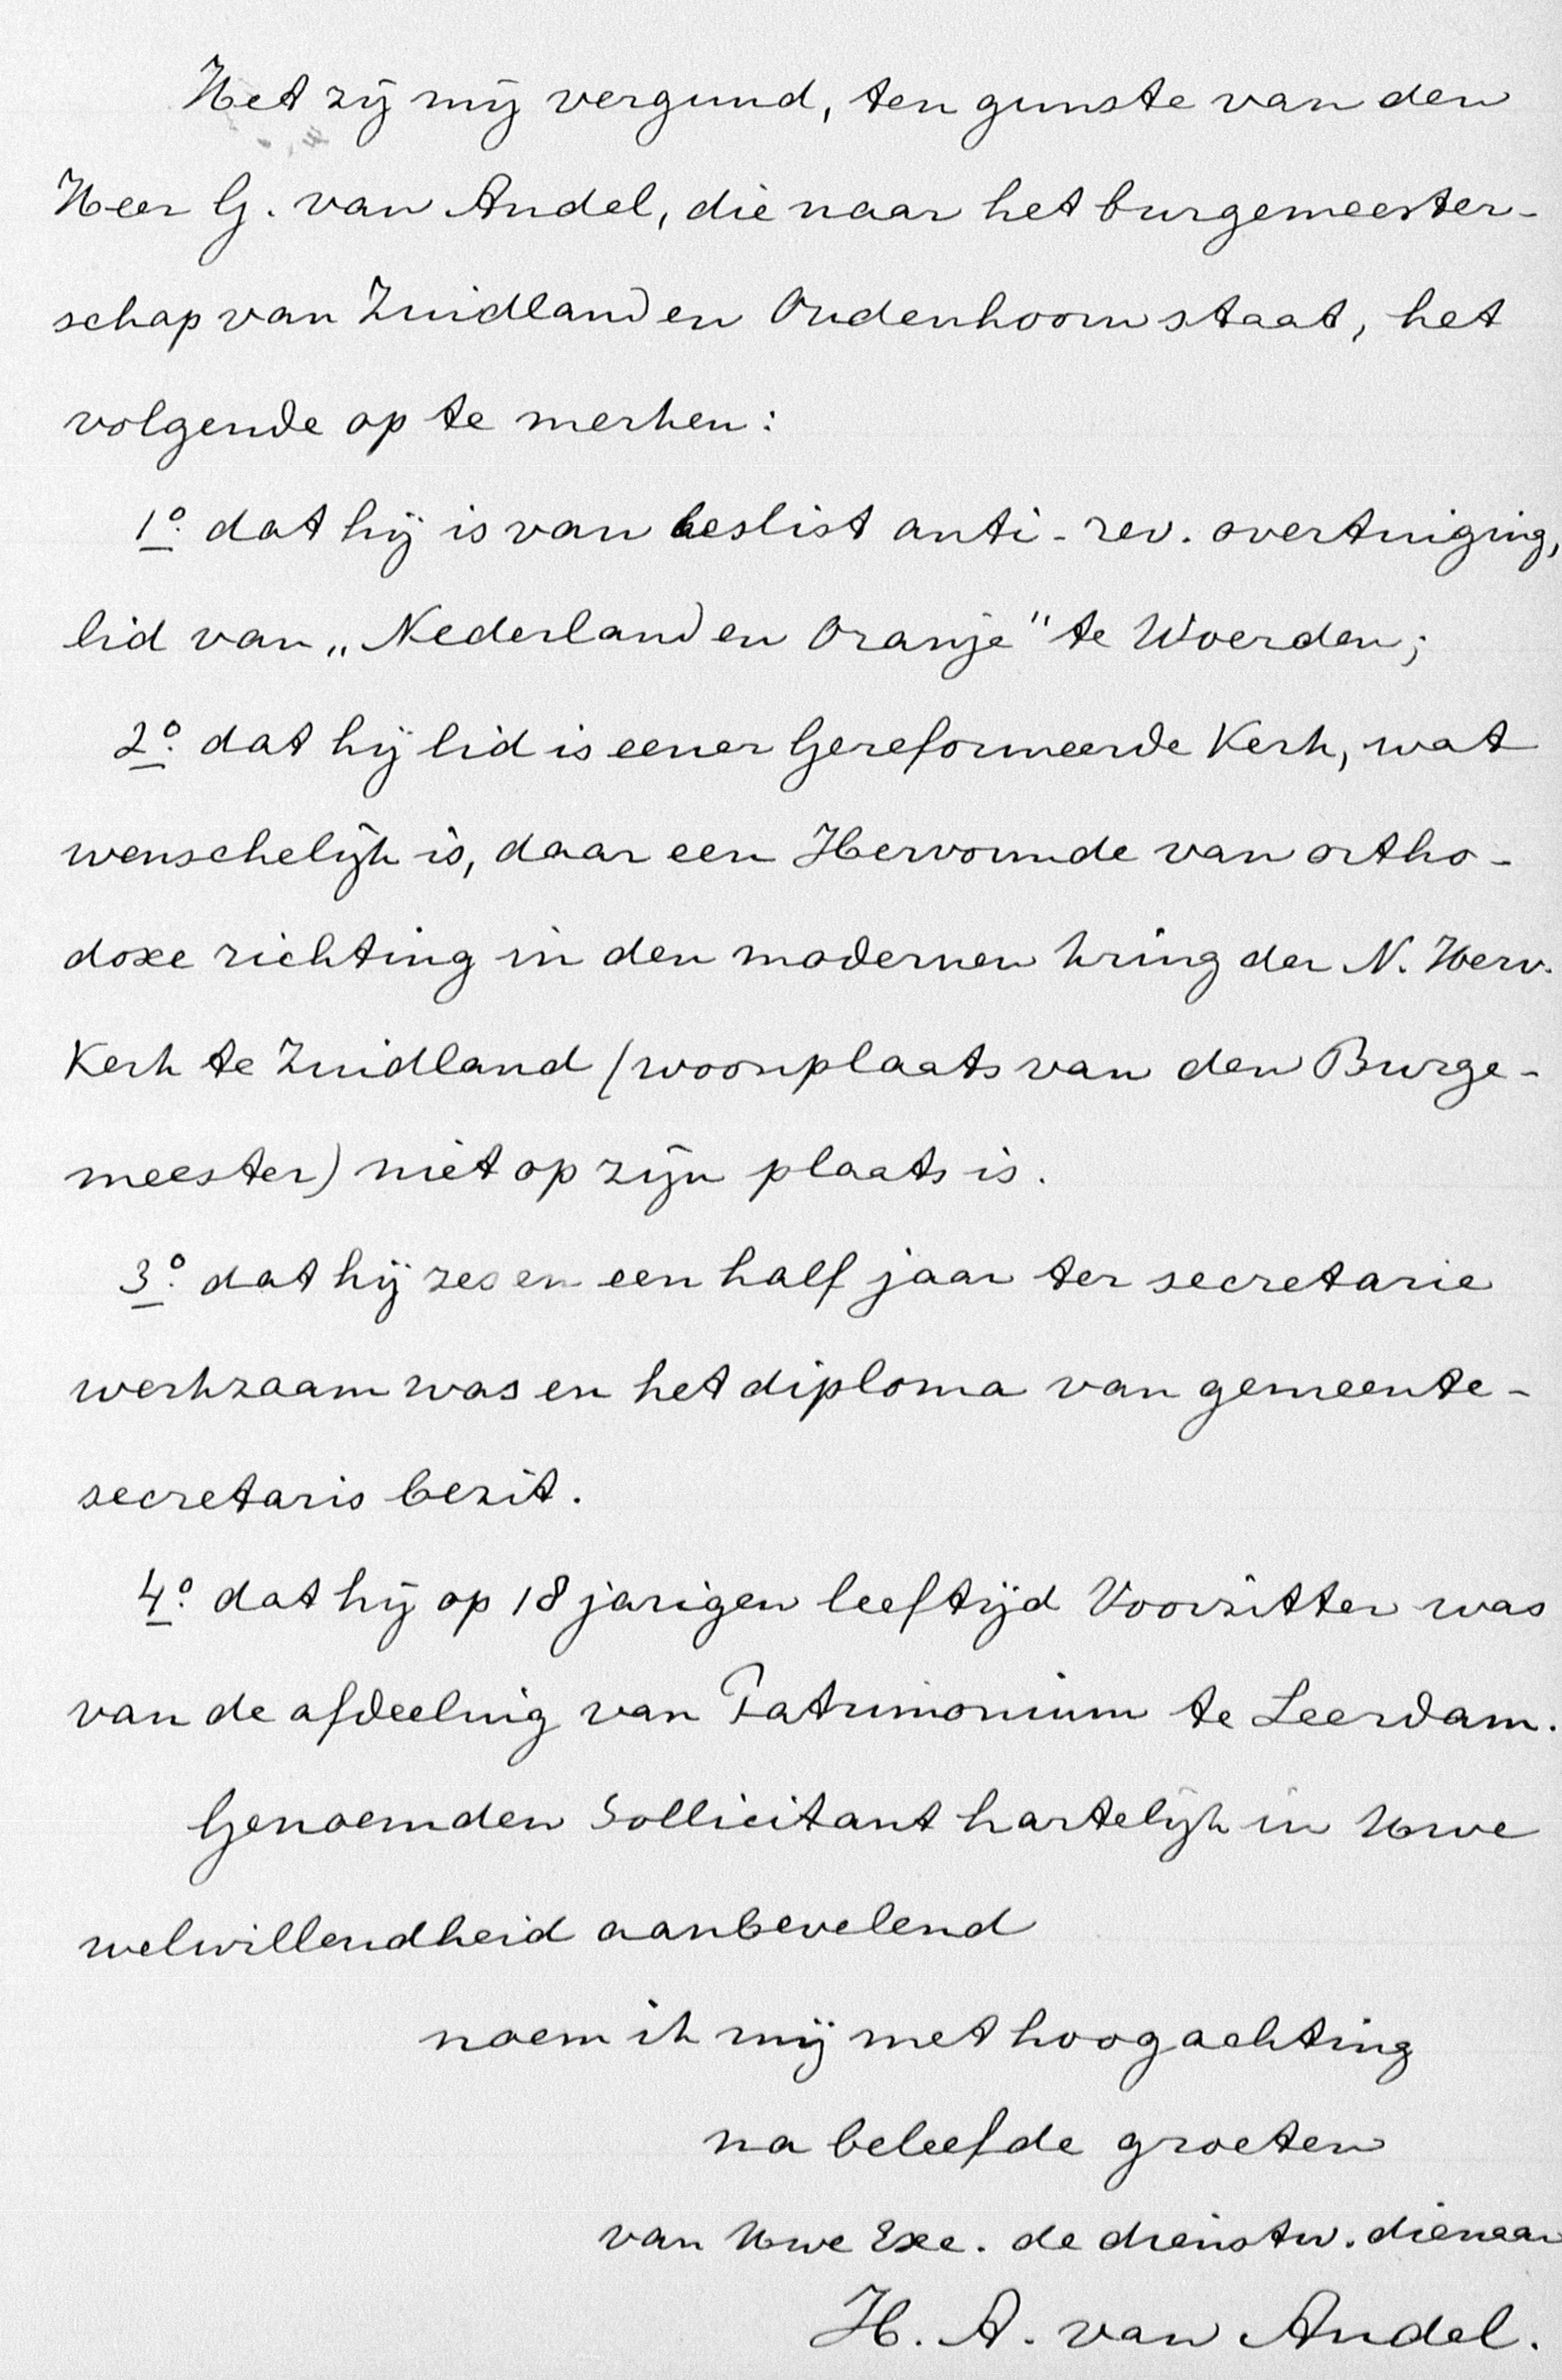 Het zij mij vergund, ten gunste van den
Heer G. van Andel, die naar het burgemeester-
schap van Zuidland en Oudenhoorn staat, het
volgende op te merken:
1º. dat hij is van beslist anti-rev. overtuiging,
lid van „Nederland en Oranje" te Woerden;
2º. dat hij lid is eener Gereformeerde Kerk, wat
wenschelijk is, daar een Hervormde van ortho-
doxe richting in den modernen kring der N. Herv.
Kerk te Zuidland (woonplaats van den Burge-
meester) niet op zijn plaats is.
3º. dat hij zes en een half jaar ter secretarie
werkzaam was en het diploma van gemeente-
secretaris bezit.
4º. dat hij op 18 jarigen leeftijd Voorzitter was
van de afdeeling van Patrimonium te Leerdam.
Genoemden Sollicitant hartelijk in Uwe
welwillendheid aanbevelend
noem ik mij met hoogachting
na beleefde groeten
van Uwe Exc. de dienstw. dienaar
H. A. van Andel.